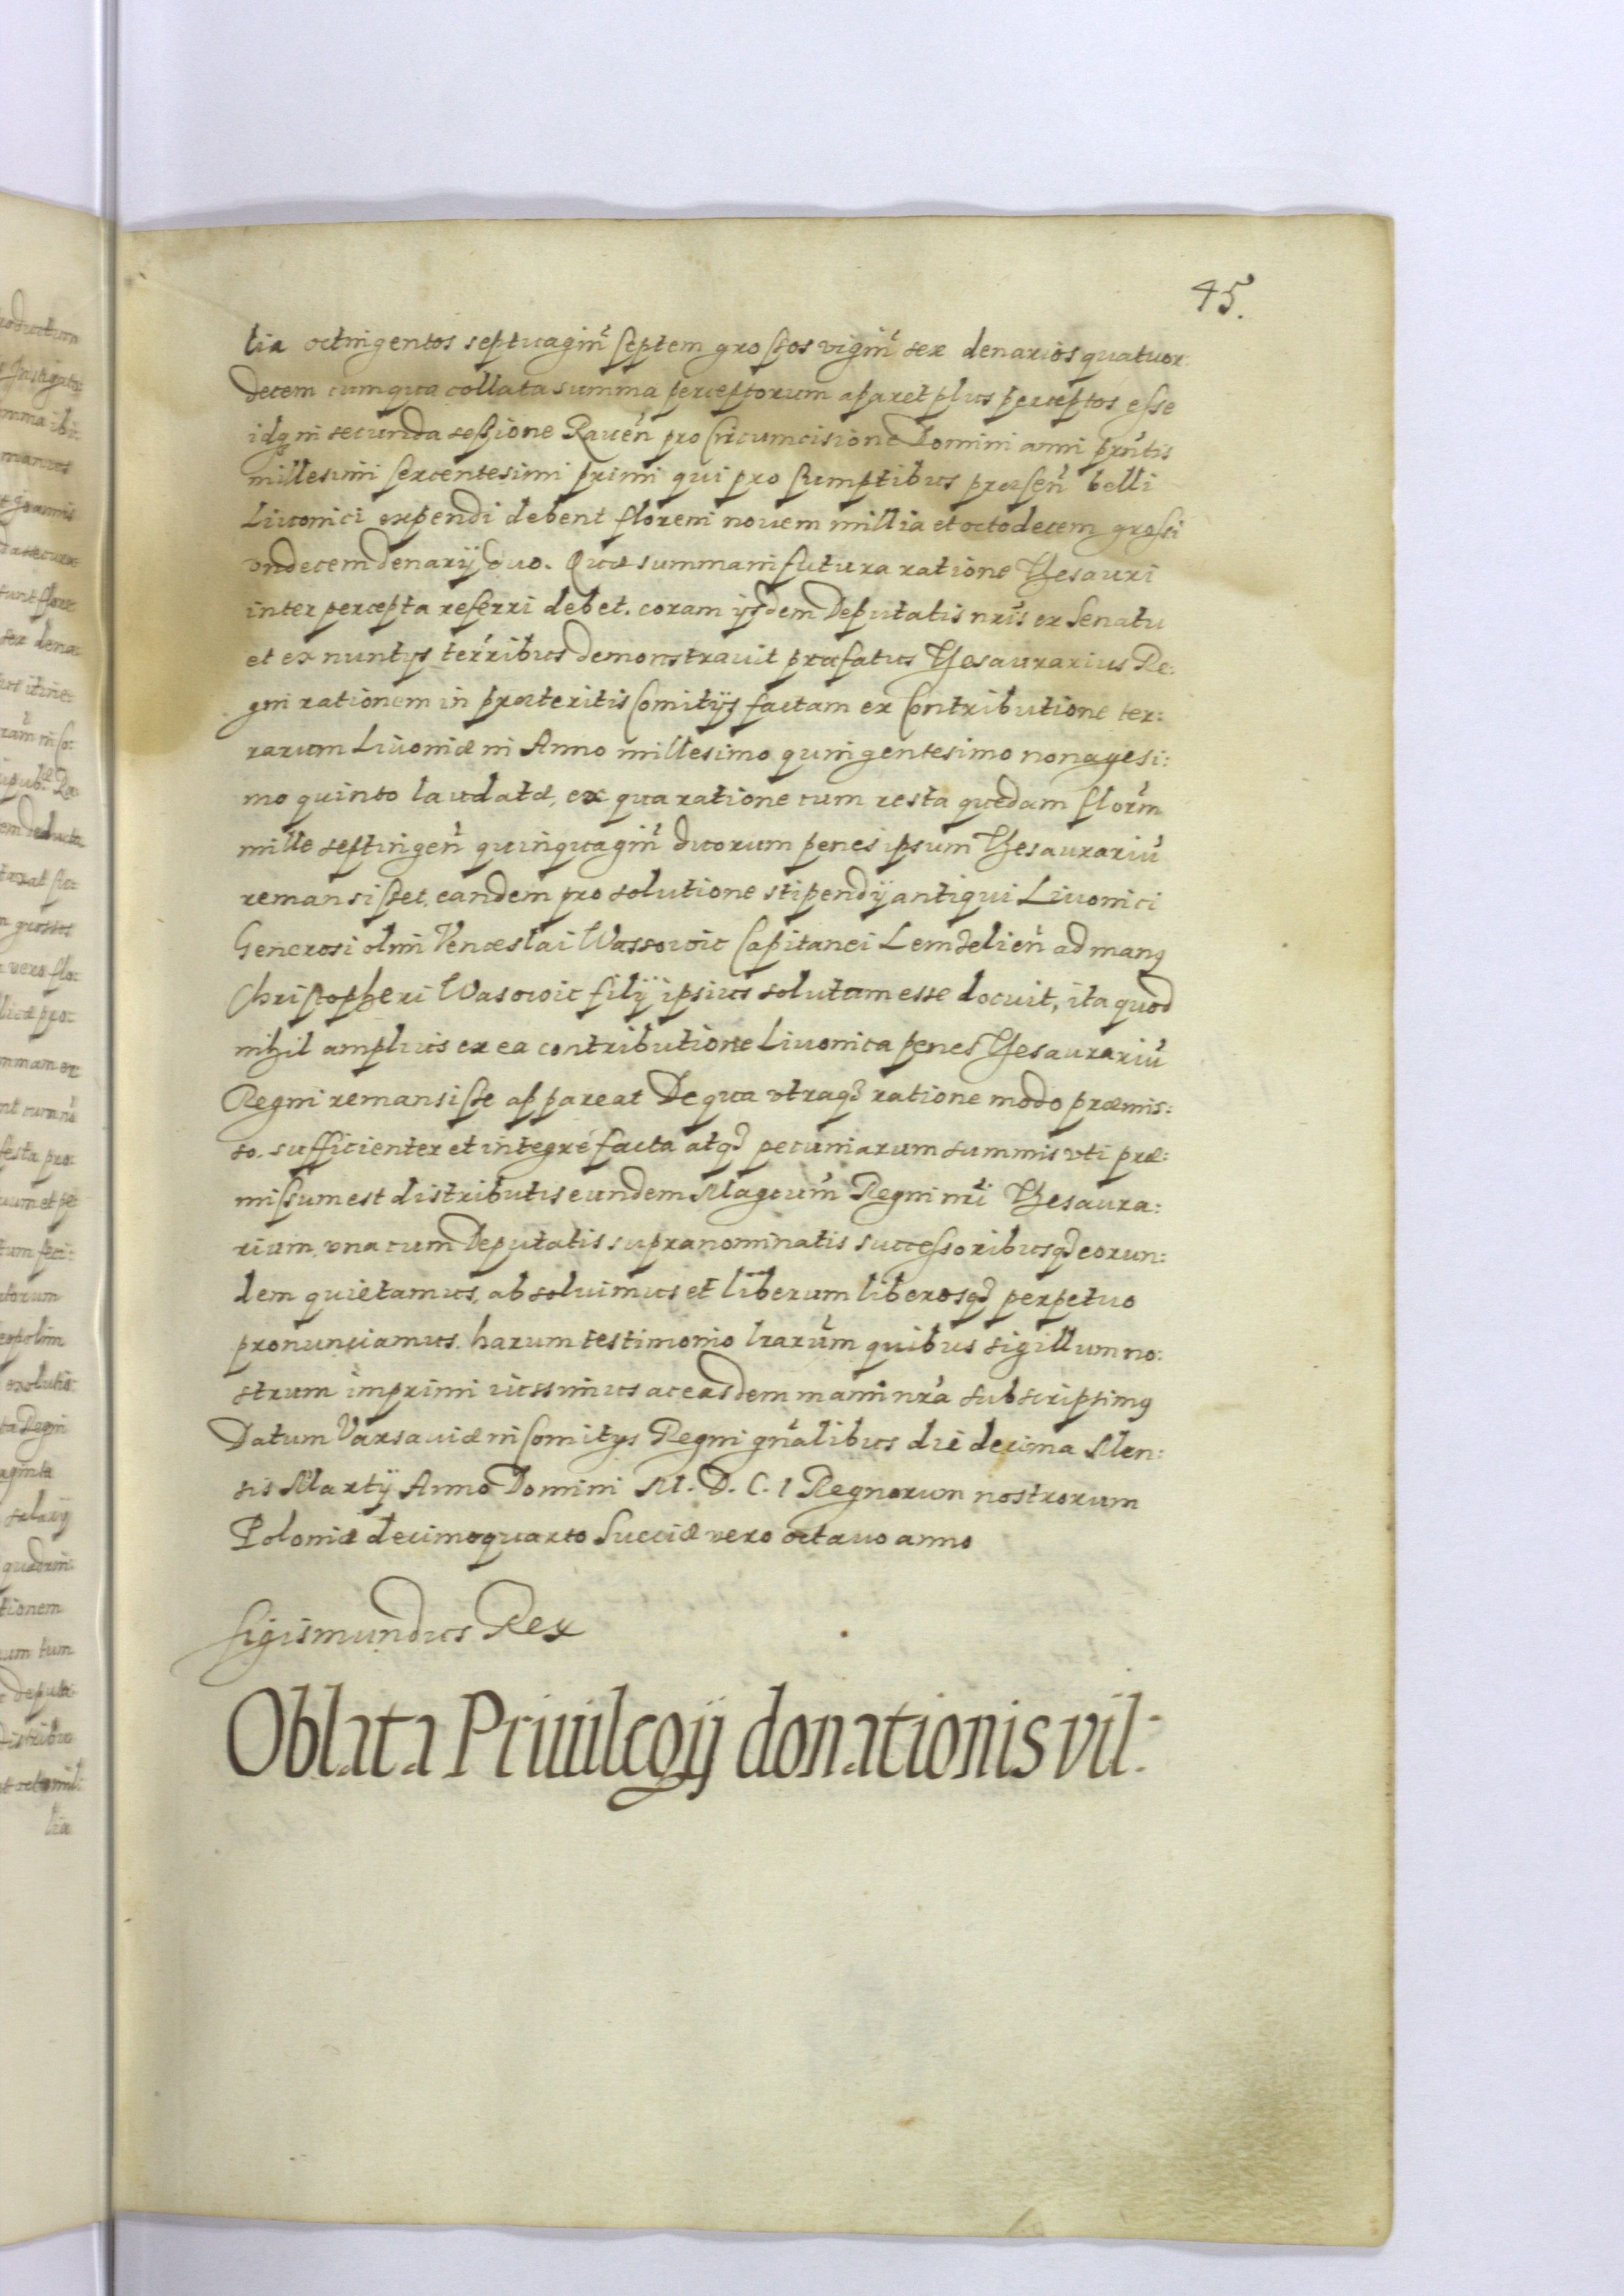 45.
lia octingentos septuagint septem grossos vigint sex denarios quatuor
decem cum qua collata summa perceptorum aparet plus perceptos esse
idq in secunda sessione Raven pro Circumcisione Domini anni pntis
millesimi sexcentesimi primi qui pro sumptibus præsen belli
Liuonici expendi debent floreni nouem millia et octodecem grossi
vndecem denarij duo. Quæ summa in futura ratione Thesauri
inter percepta referri debet. coram ijsdem Deputatis nris ex Senatu
et ex nuntijs terribus demonstrauit præfatus Thesaurarius Re:
gni rationem in præteritis Comitijs factam ex Contributione ter:
rarum Liuoniæ in Anno millesimo quingentesimo nonagesi:
mo quinto laudatæ, ex qua ratione cum resta quædam florm
mille septingen quinquagint duorum penes ipsum Thesaurariu
remansisset, eandem pro solutione stipendij antiqui Liuonici
Generosi olim Venceslai Wassowic Capitanei Lemselien ad manq
Christopheri Wasowic filij ipsius solutam esse docuit, ita quod
nihil amplius ex ea contributione Liuonica penes Thesaurariu
Regni remansisse appareat De qua vtraq ratione modo præmis:
so. sufficienter et integre facta atq pecuniarum summis vti præ:
missum est distributis eundem Magcum Regni nri Thesaura:
rium, vna cum Deputatis supranominatis successoribusq eorun:
dem quietamus, absoluimus et liberum liberosq perpetuo
pronunciamus. harum testimonio lrarum quibus sigillum no:
strum imprimi iussimus ac easdem manu nra subscripsimq
Datum Varsauiæ in Comitijs Regni gnalibus die decima Men:
sis Martij Anno Domini M. D. C. I Regnorum nostrorum
Poloniæ decimoquarto Sueciæ vero octauo anno
Sigismundus Rex
Oblata Priuilegij donationis vil: